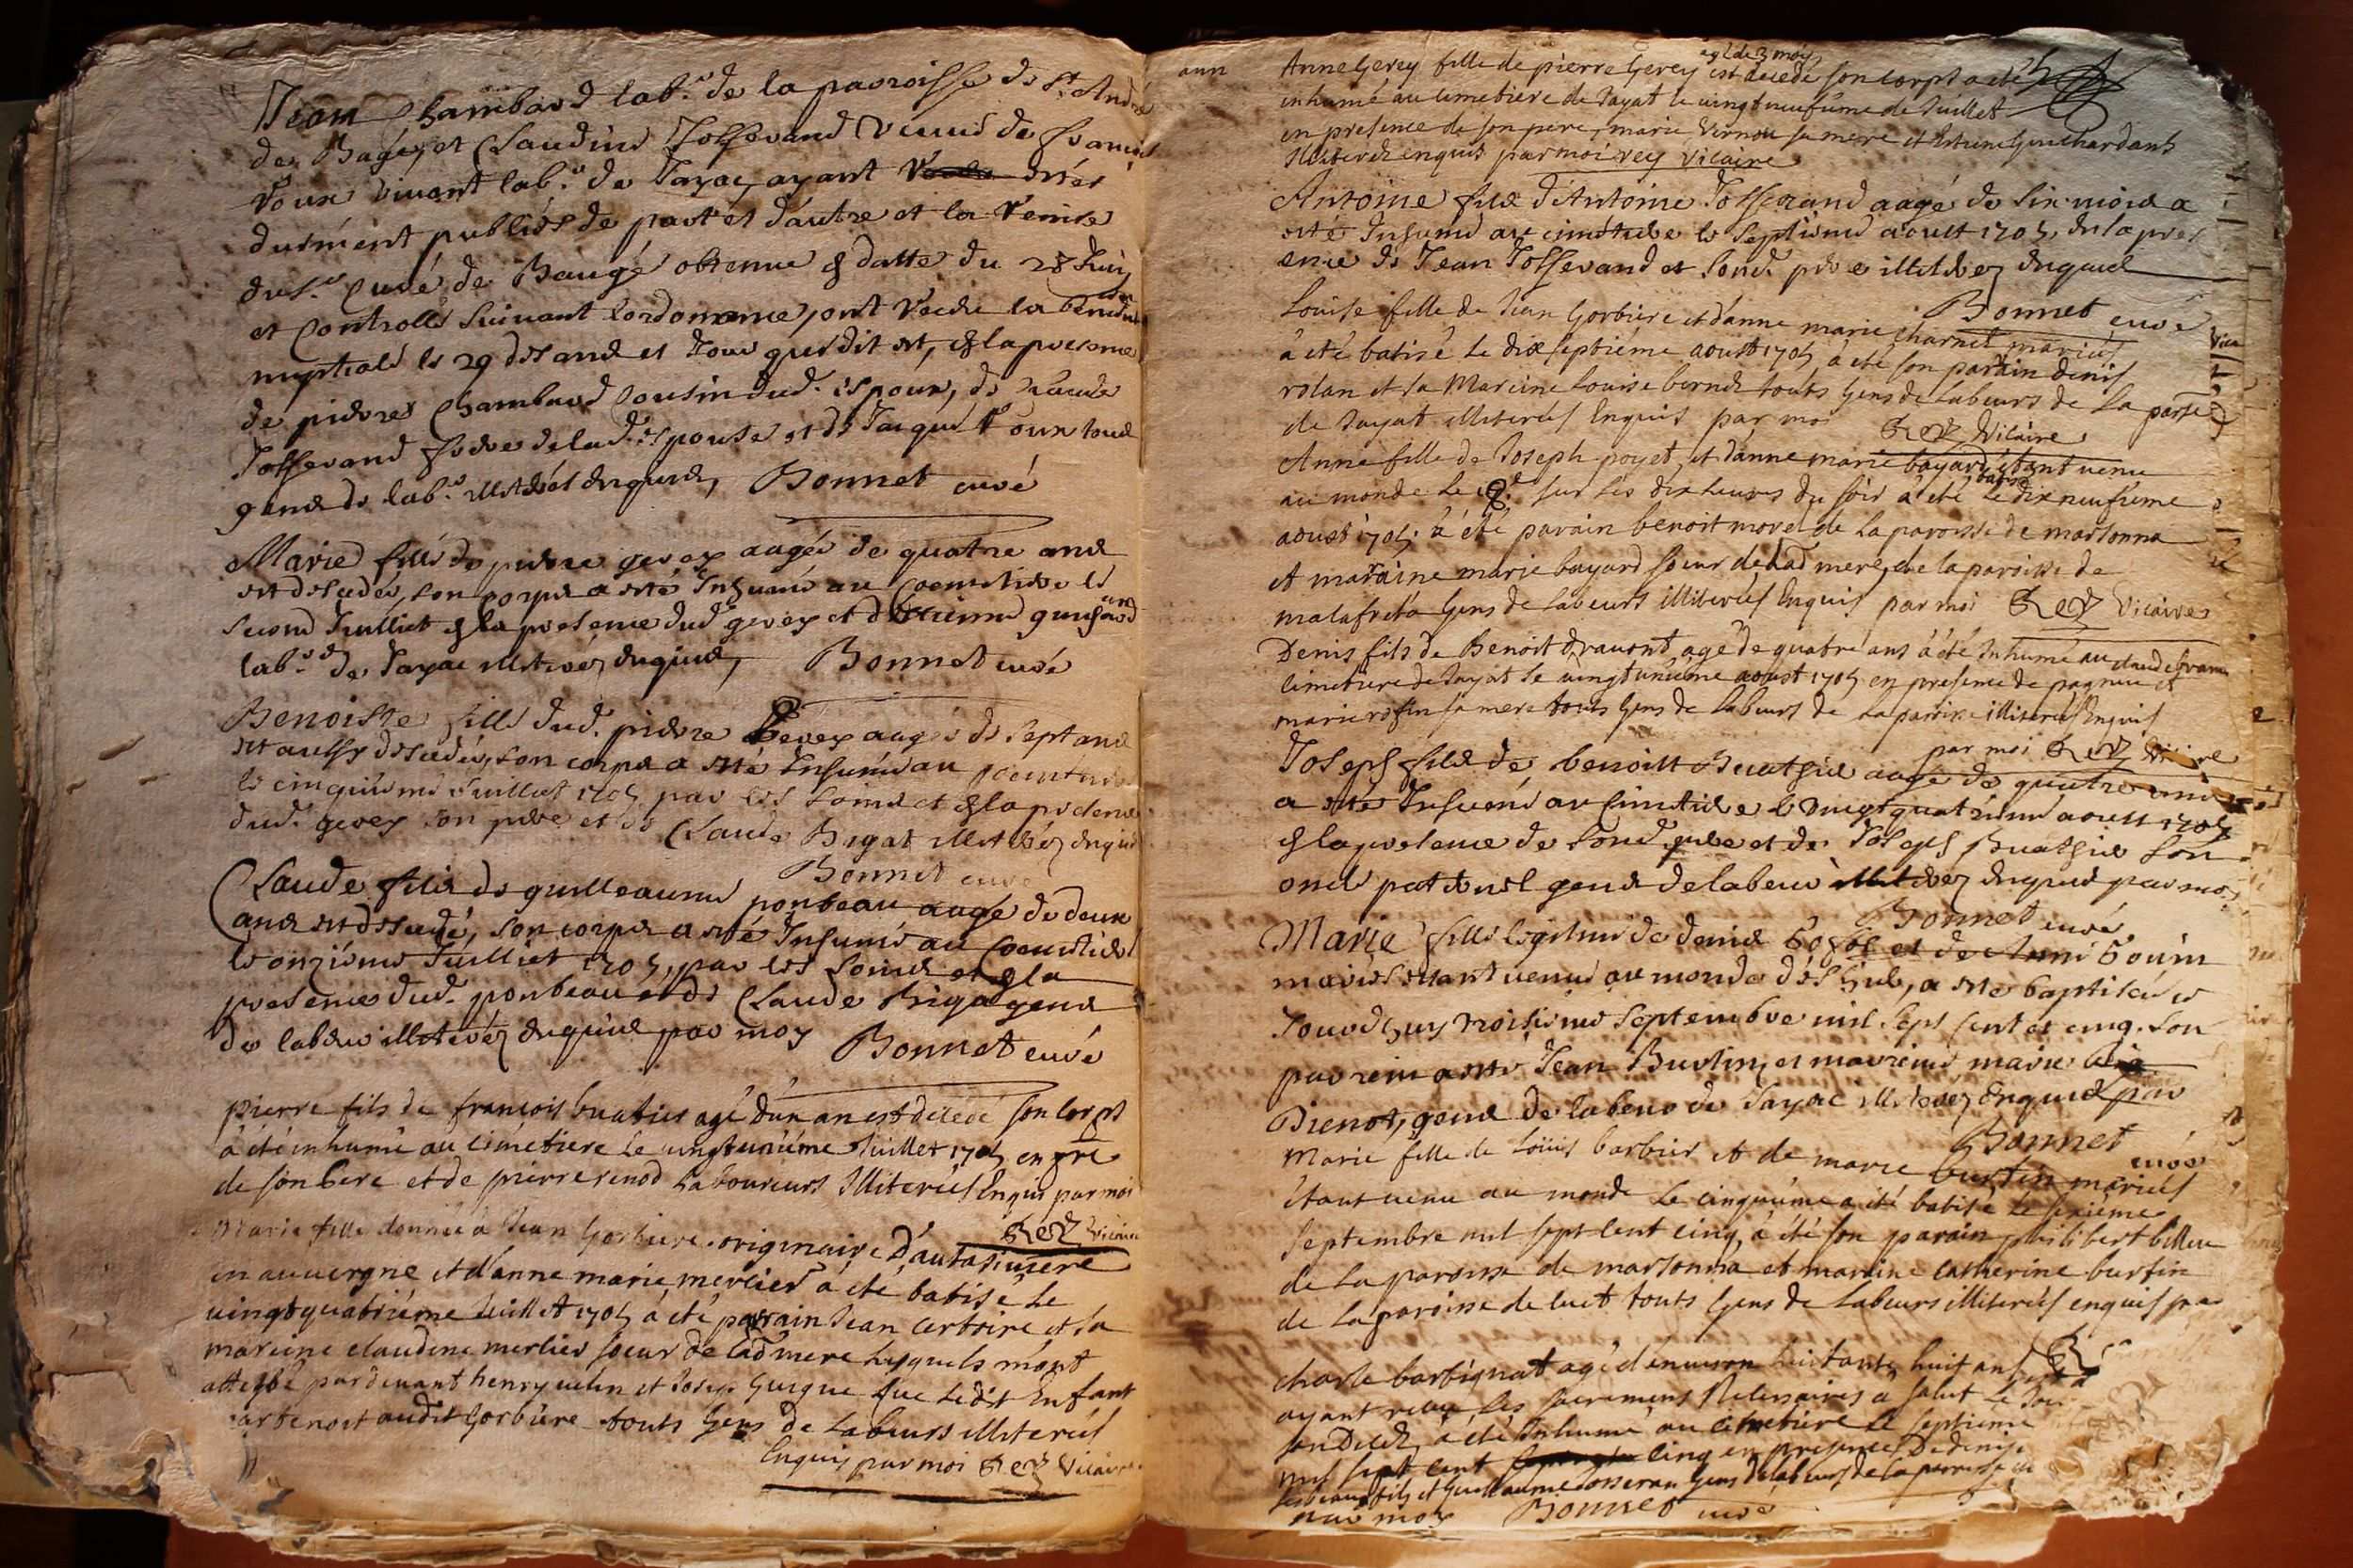 Jean Chambard lab.r de la paroisse de St. André
de Bagé, et Claudine Josserand veuve de François
Voux vivant lab.r de Jayac, ayant esté
duëment publiés de part et d'autre et la remise
du s.r curé de Baugé obtenue en datte du 28 Juin
et Controllé suivant l'ordonnance, ont receu la bened.on
nuptiale le 29 des and et jour que dit est, en la presence
de pierre Chambard cousin dud. espoux, de Claude
Josserand frere de lad. espouse et de Jacque Voux tous
gens de lab.r illiterés enquis, Bonnet curé
Marie fille de pierre gerey augée de quatre ans
est decedée, son corps a esté Inhumé au Coemetiere le
second Juillet en la presence dud. gerey et d'Estienne guichard
lab.rs de Jayac illiterez enquis, Bonnet curé
Benoiste fille dud. pierre Gerey augée de sept ans
est aussy decedée, son corps a esté Inhumé au coemetiere
le cinquiesme Juillet 1705 par les soins et en la presence
dud. gerey son pere et de Claude Rigat illiterez enquis
Bonnet curé
Claude fils de guilleaume ponbeau augé de deux
ans est decedé, son corps a esté Inhumé au Coemetiere
le onziesme Juilliet 1705, par les soins et en la
presence dud. ponbeau et de Claude Riga gens
de labeur illiterez enquis par moy Bonnet curé
pierre fils de françois buatier agé d'un an est decedé son corps
à été inhumé au cimetiere le vingtunième Juillet 1705 en pre
de son pere et de pierre renod Laboureurs Illiterés Enquis par moi
Rey vicaire
Marie fille donnée à Jean Gorbiere originaire D'
en auvergne et d'anne marie merlier à été batisé le
vingtquatrième Juillet 1705 à été parrain Jean et sa
mareine claudine merlier soeur de lad mere lesquels m'ont
attesté pardevant henry et Josep Guigue que ledit Enfant
artenoit audit Gorbiere touts Gens de Labeurs illiterés
Enquis par moi Rey Vicaire
ann
agé de 3 mois
Anne Gerey fille de pierre Gerey est decedé son corps a été
inhumé au cimetiere de Jayat le vingtneufième de Juillet
en presence de son pere, marie Vernou sa mere et Estiene Guichardant
Illiterés enquis par moi rey vicaire
Antoine fils d'Antoine Josserand aagé de six mois a
esté Inhumé au cimetiere le septiesme aoust 1705, en la pres
ence de Jean Josserand et sond. pere illiterez enquis
Bonnet curé
Louise fille de Jean Gorbiere et d'anne marie charnet mariés
à été batisé le dixseptième aoust 1705 à été son parain denis
rolan et sa Mareine Louise touts Gens de Labeurs de La parse
de Jayat illiterés Enquis par moi Rey Vicaire
Anne fille de Joseph poyet, et d'anne marie bayard étant venu
au monde le sur les dix heures du soir à été batisé le dixneufième
aoust 1705. à été parain benoit morel de La paroisse de marsonna
et maraine marie bayard soeur de lad mere, de la paroisse de
malafreta Gens de Labeurs illiterés Enquis par moi Rey vicaire
Denis fils de Benoit agé de quatre ans à été Inhumé au
cimetiere de Jayat le vingtunième aoust 1705 en presence de
marie sa mere touts Gens de Labeurs de La paroisse illiterés Enquis
par moi Rey Vicaire
Joseph fils de benoist Buathier augé de quatre ans
a esté Inhumé au cimetiere le vingtquatriesme aoust 1705
en la presence de sond. pere et de Joseph Buathier son
oncle paternel gens de labeur illiterez enquis par moy
Bonnet curé
Marie fille legitime de denis et de Anne Gouin
mariés estant venue au monde des hier, a esté baptisée ce
jourdhuy troisiesme septembre mil sept cent et cinq. son
parrein a esté Jean Burtin, et marreine marie
Pienot, gens de labeur de Jayac illiterez enquis par
Bonnet curé
Marie fille de Louis barbier et de marie burtin mariés
étant venu au monde le cinquième a été batisé le sixième
septembre mil sept cent cinq, à été son parain philibert billieu
de La paroisse de marsonna et marraine catherine burtin
de La paroisse de touts Gens de Labeurs illiterés enquis par
charle barbignat agé d'environ huitante huit ans
ayant receu les sacremens Necessaires à salut le jour
son Decez, a été Inhumé au cimetiere le septieme
mil sept cent cinq en presence De denis
son beau fils et Guillaume Josseran Gens de labeurs de la parroisse
par moy Bonnet curé